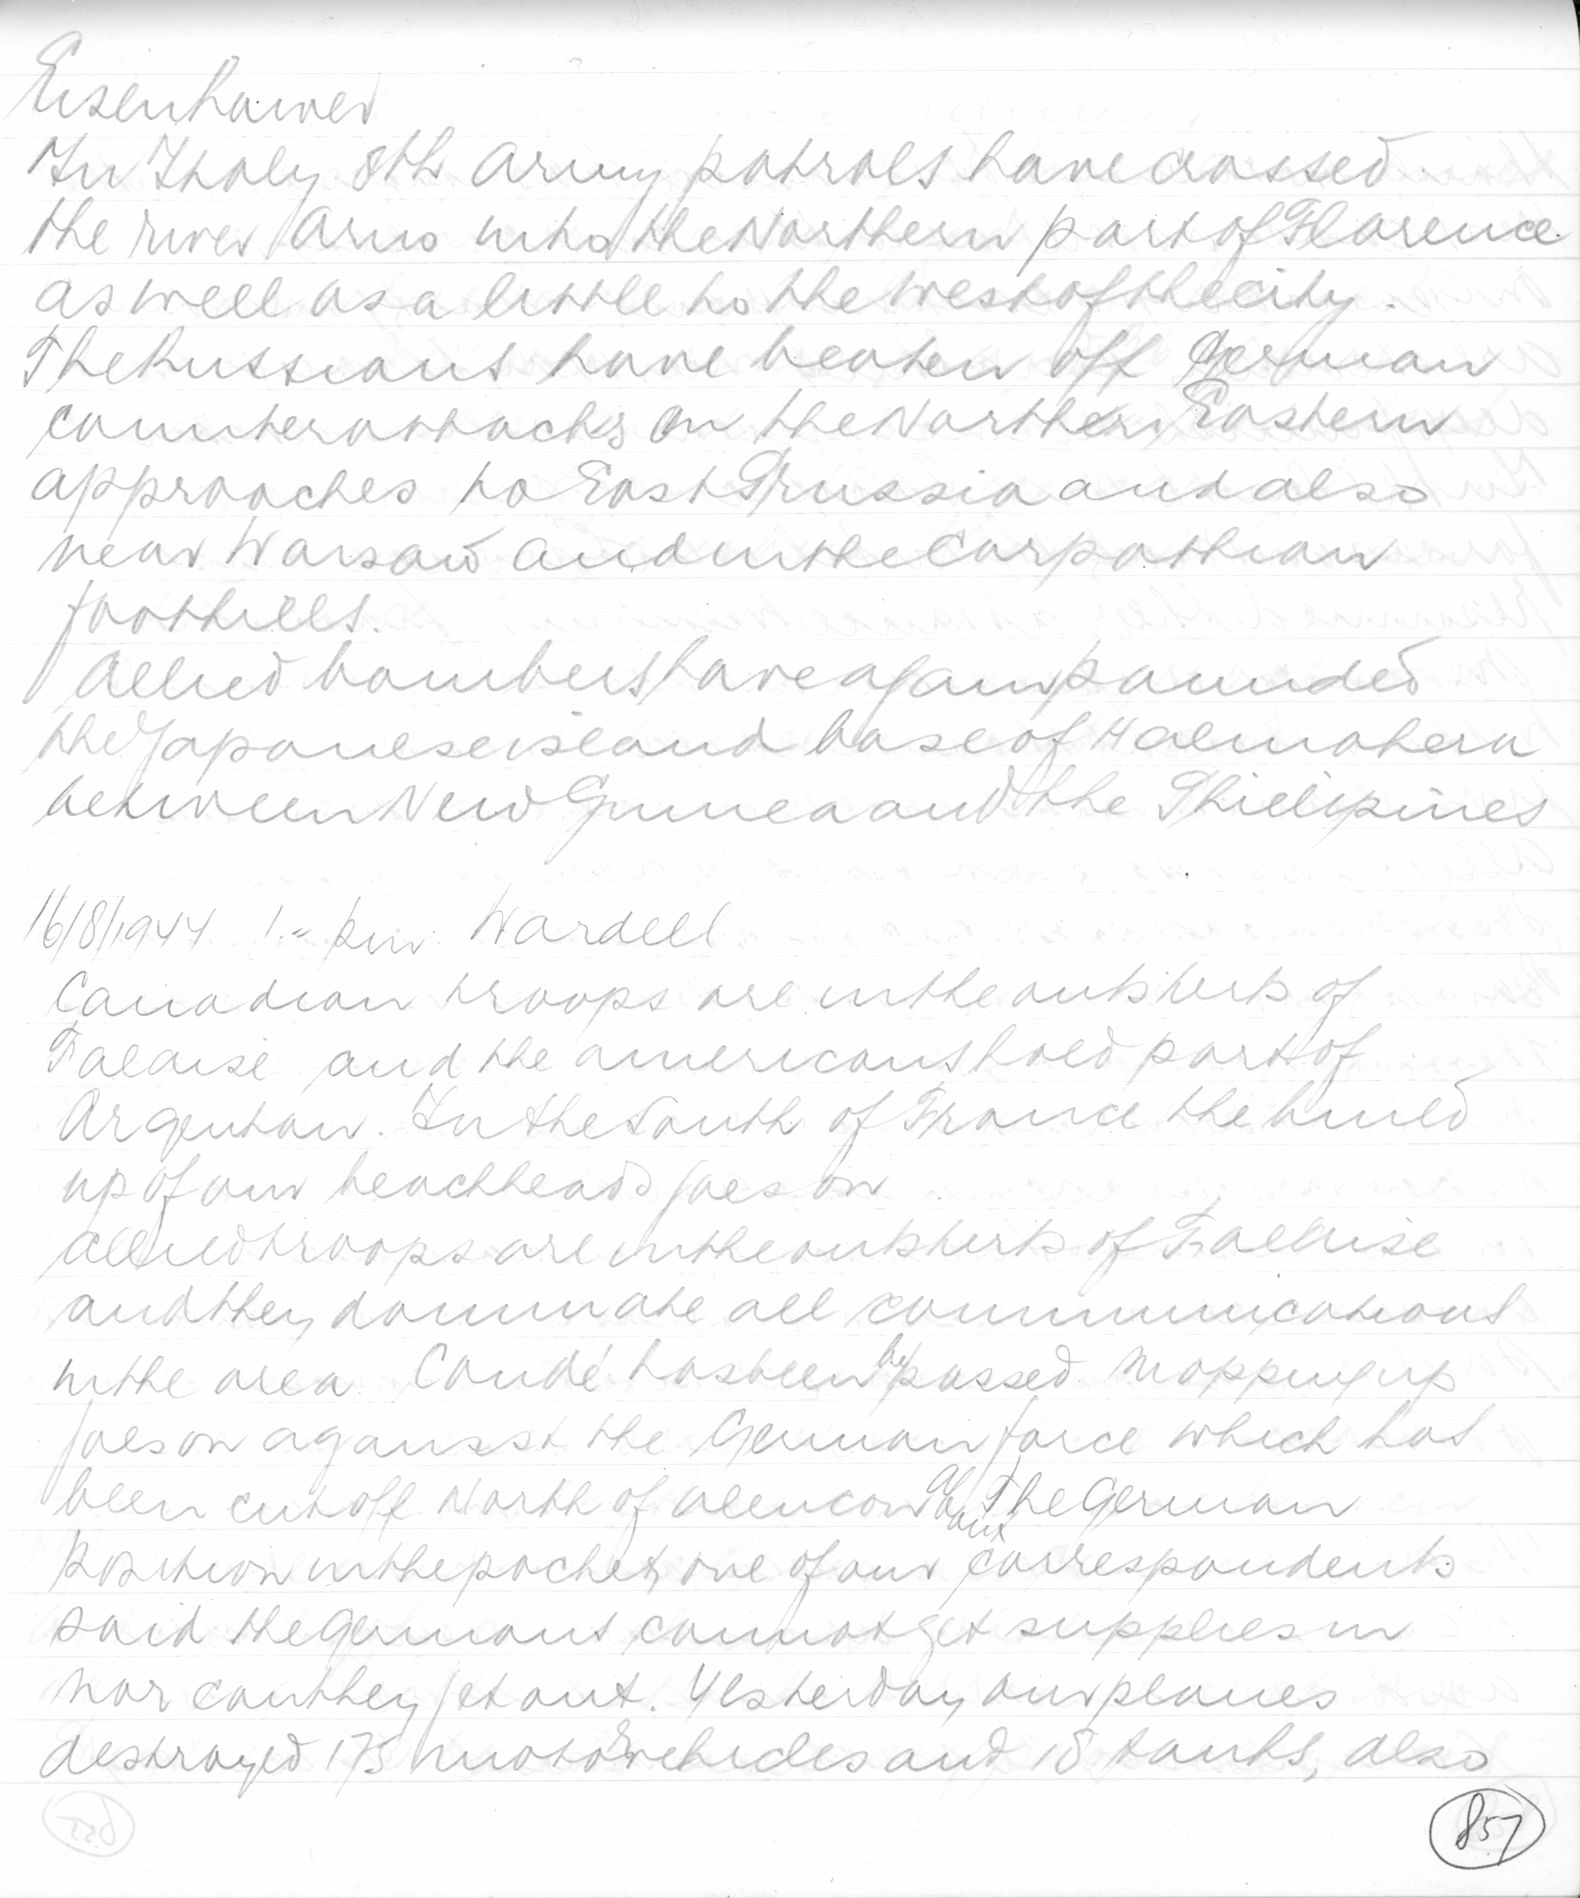 Eisenhower
In Italy 8th Army patrols have crossed
the river Arno into the Northern part of Florence
as well as a little to the west of the city.
The Russians have beaten off German
counterattacks on the Northern Eastern
approaches to East Prussia and also
near Warsaw and in the Carpathian
foothills.
Allied bombers have again pounded
the Japanese island base of Halmahera
between New Guinea and the Philipines
16/8/1944 1.- pm Wardell
Canadian troops are in the outskirts of
Falaise and the americans hold part of
Argentan. In the South of France the build
up of our beachheads goes on
allied troops are in the outskirts of Falaise
and they dominate all communications
in the area. Condé has been bypassed. Mopping up
goes on against the German force which has
been cut off North of Alencon about The German
position in the pocket, one of our correspondents
said the Germans cannot get supplies in
nor can they get out. Yesterday our planes
destroyed 175 motor vehicles and 18 tanks, also
857